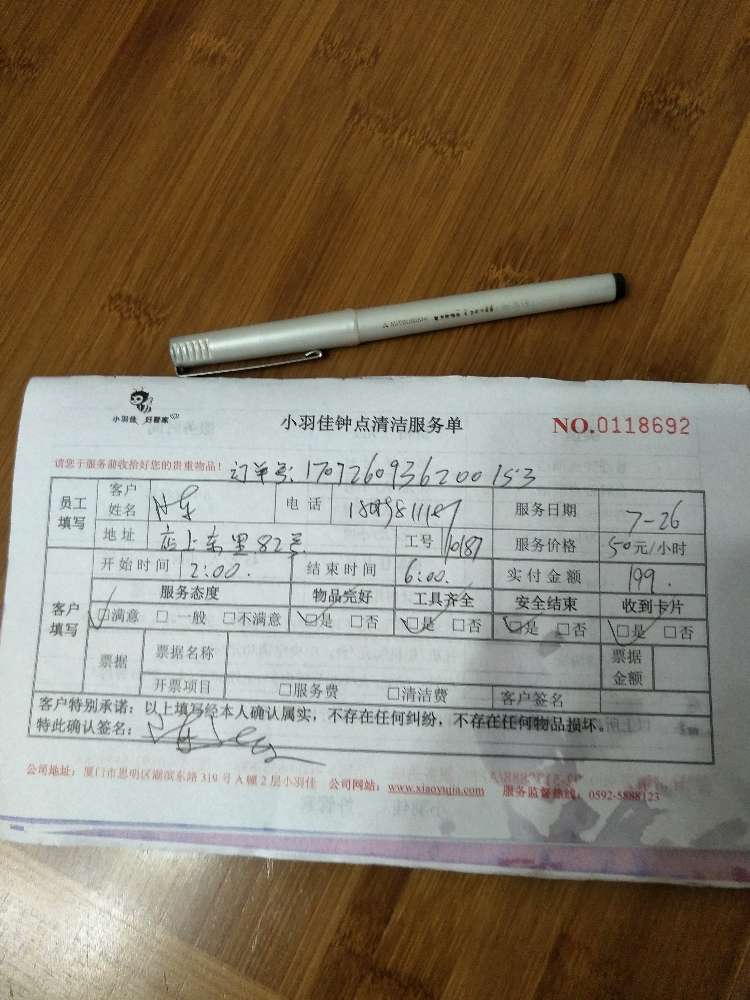 MITSUBISHI
小羽佳 好管家
小羽佳钟点清洁服务单
NO.0118692
请您于服务前收拾好您的贵重物品！ 订单号: 1707260936200153
员工填写 客户姓名 电话 服务日期 7-26
地址 店上东里82号 工号 10187 服务价格 50元/小时
客户填写 开始时间 2:00. 结束时间 6:00. 实付金额 199.
服务态度 物品完好 工具齐全 安全结束 收到卡片
☑满意 □一般 □不满意 ☑是 □否 ☑是 □否 ☑是 □否 ☑是 □否
票据 票据名称 票据金额
开票项目 □服务费 □清洁费 客户签名
客户特别承诺：以上填写经本人确认属实，不存在任何纠纷，不存在任何物品损坏。
特此确认签名：
公司地址：厦门市思明区湖滨东路319号A幢2层小羽佳 公司网站：www.xiaoyujia.com 服务监督热线：0592-5888123